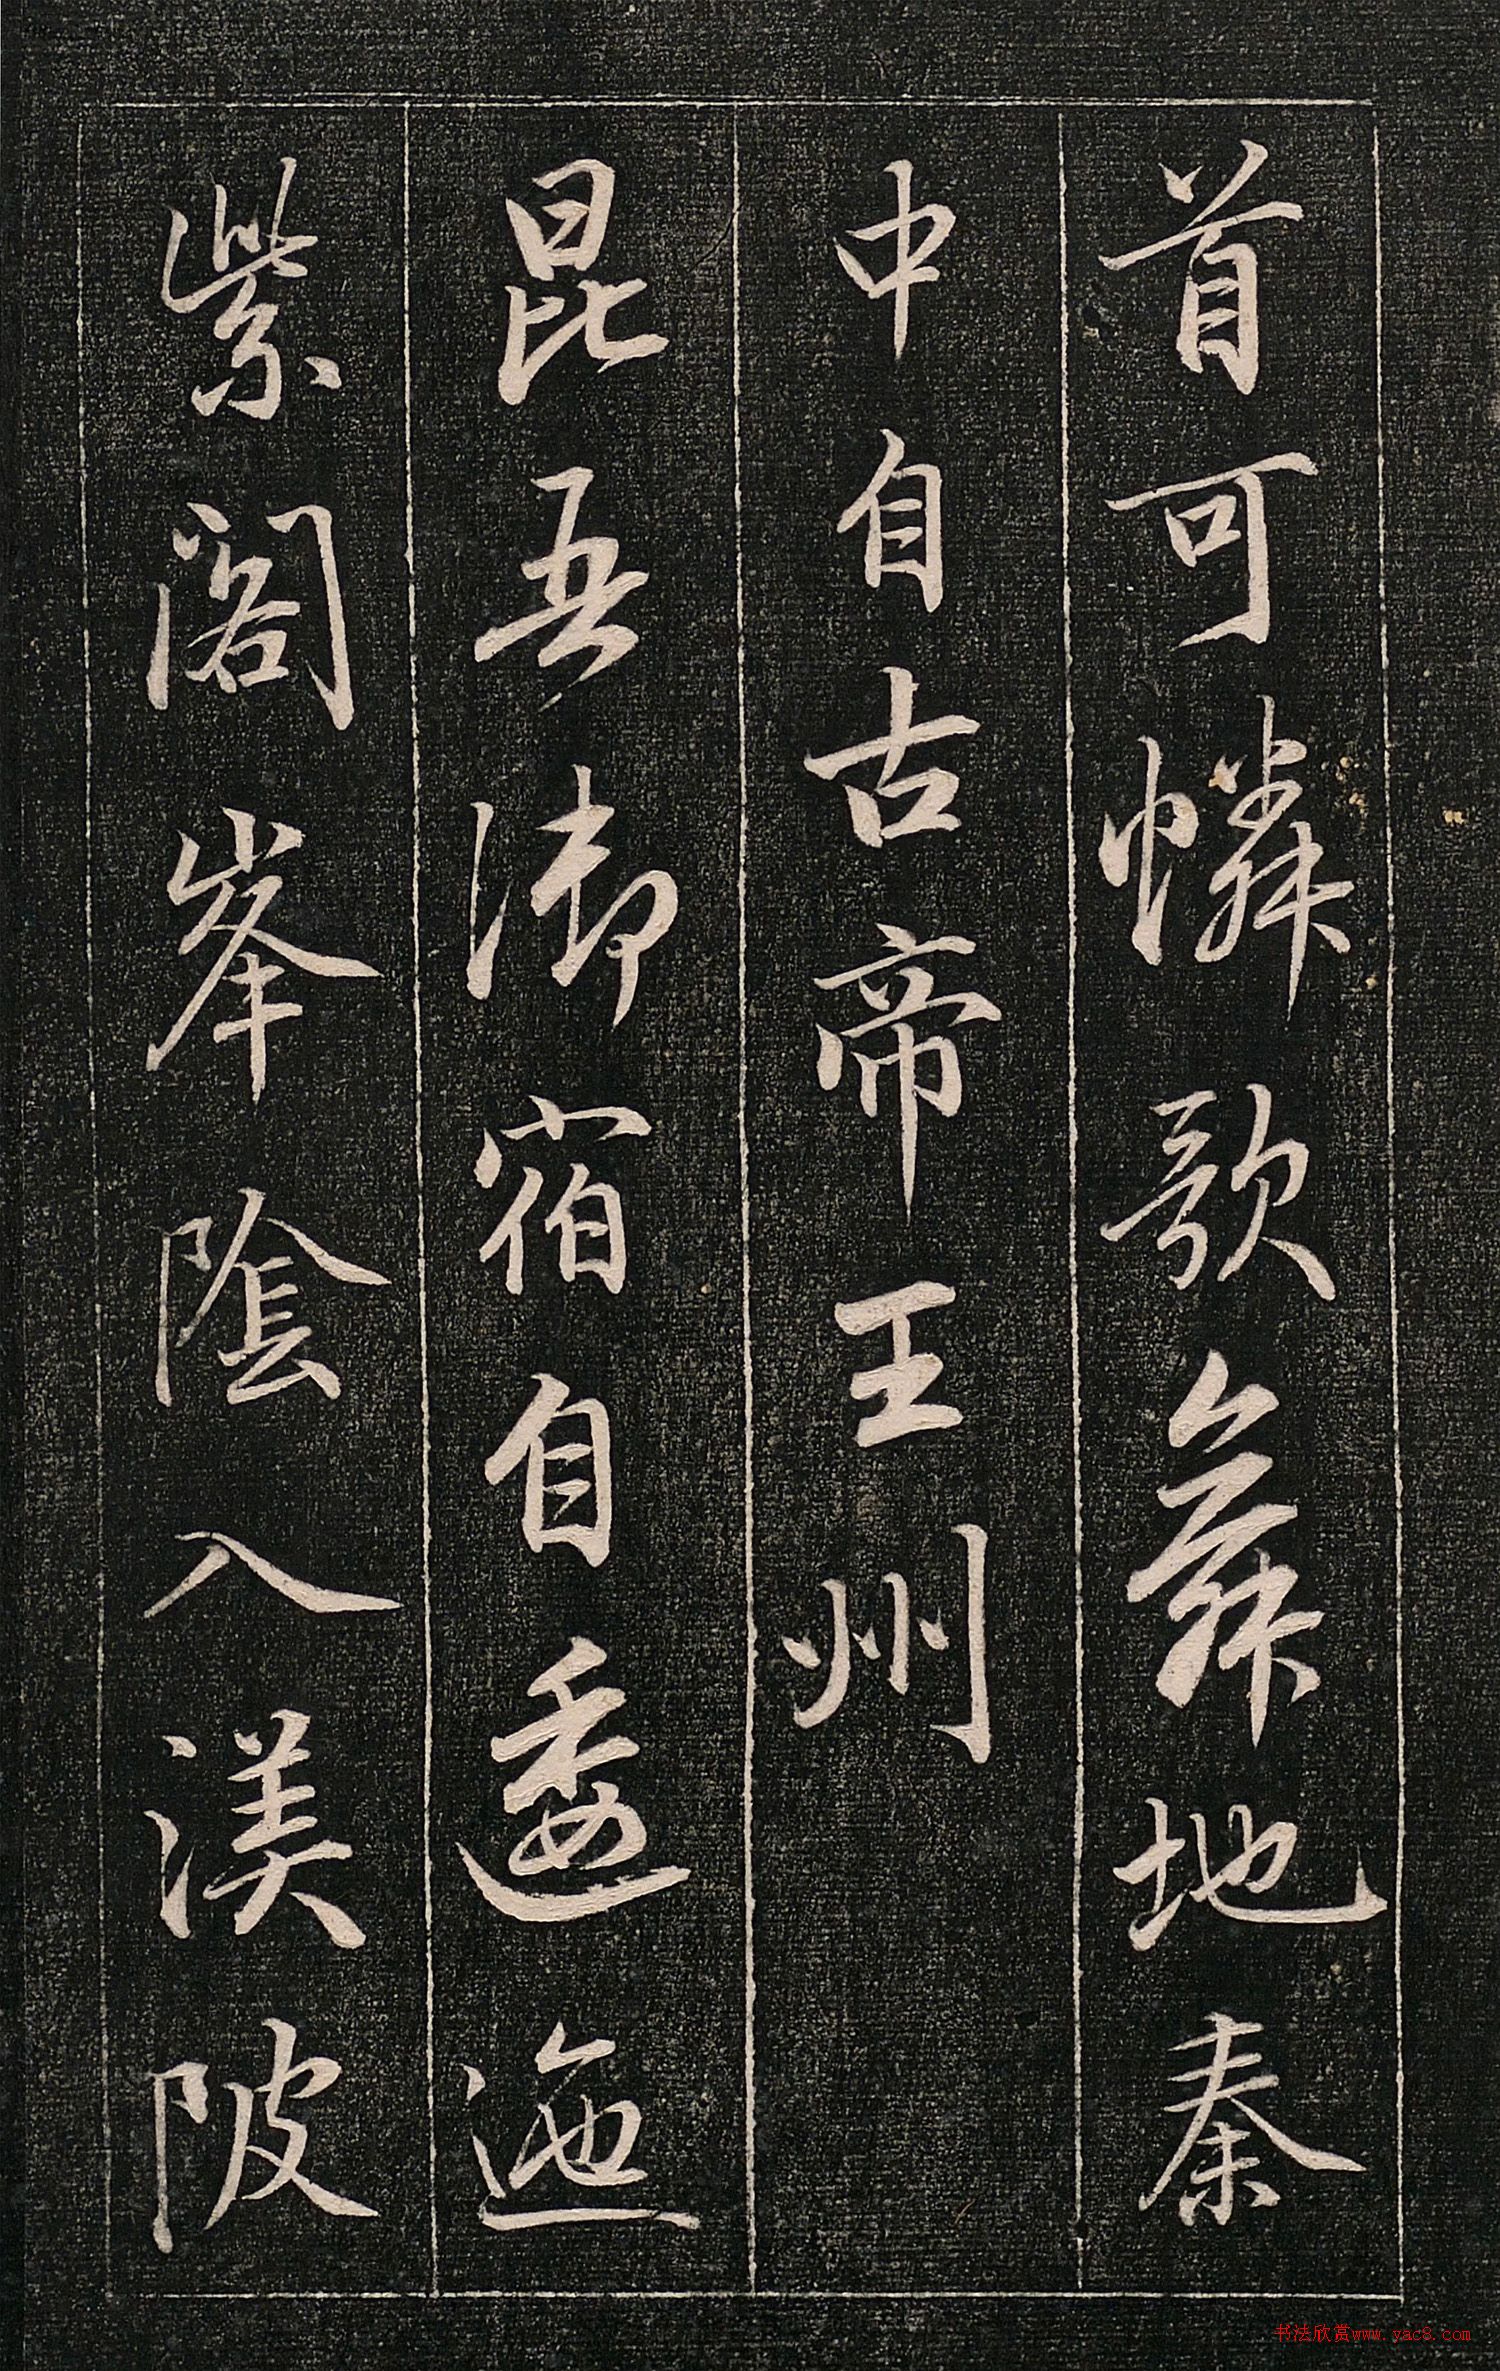 首可憐歌舞地秦
中自古帝王州
昆吾御宿自逶迤
紫閣峯陰入渼陂
书法欣赏www.yac8.com